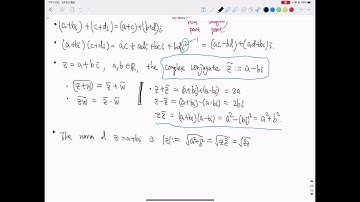 real part
imaginary part
• (a+bi) + (c+di) = (a+c) + (b+d)i
• (a+bi)(c+di) = ac + adi + bci + bdi² = (ac-bd) + (ad+bc)i
-1
• z = a+bi, a,b∈ℝ, the complex conjugate z̄ := a-bi
z+w‾ = z̄ + w̄
zw‾ = z̄ · w̄
• z+z̄ = (a+bi)+(a-bi) = 2a
z-z̄ = (a+bi)-(a-bi) = 2bi
zz̄ = (a+bi)(a-bi) = a²-(bi)² = a²+b².
• The norm of z=a+bi is |z| := √a²+b² = √zz̄ = √z̄z